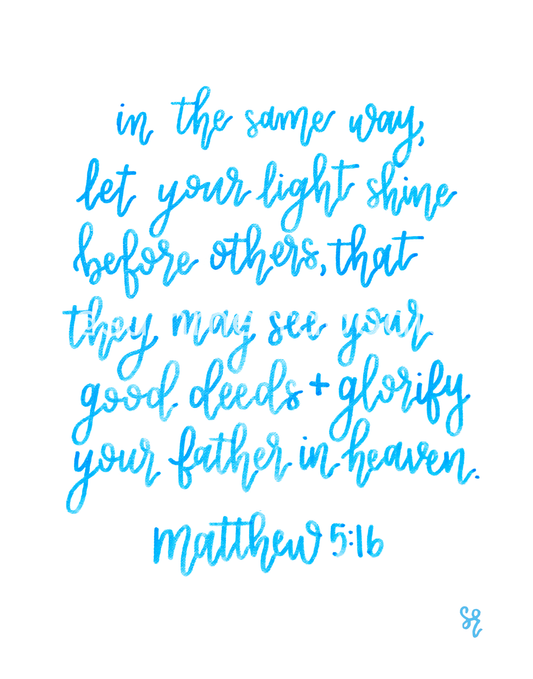 in the same way,
let your light shine
before others, that
they may see your
good deeds + glorify
your father in heaven.
matthew 5:16